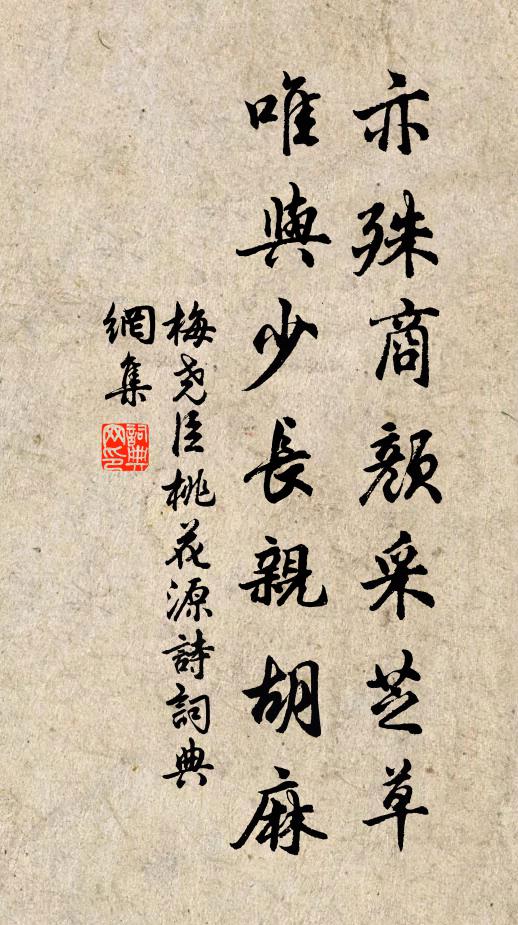 亦殊商顏采芝草
唯與少長親胡麻
梅尧臣桃花源詩詞典
網集
詞典
网印